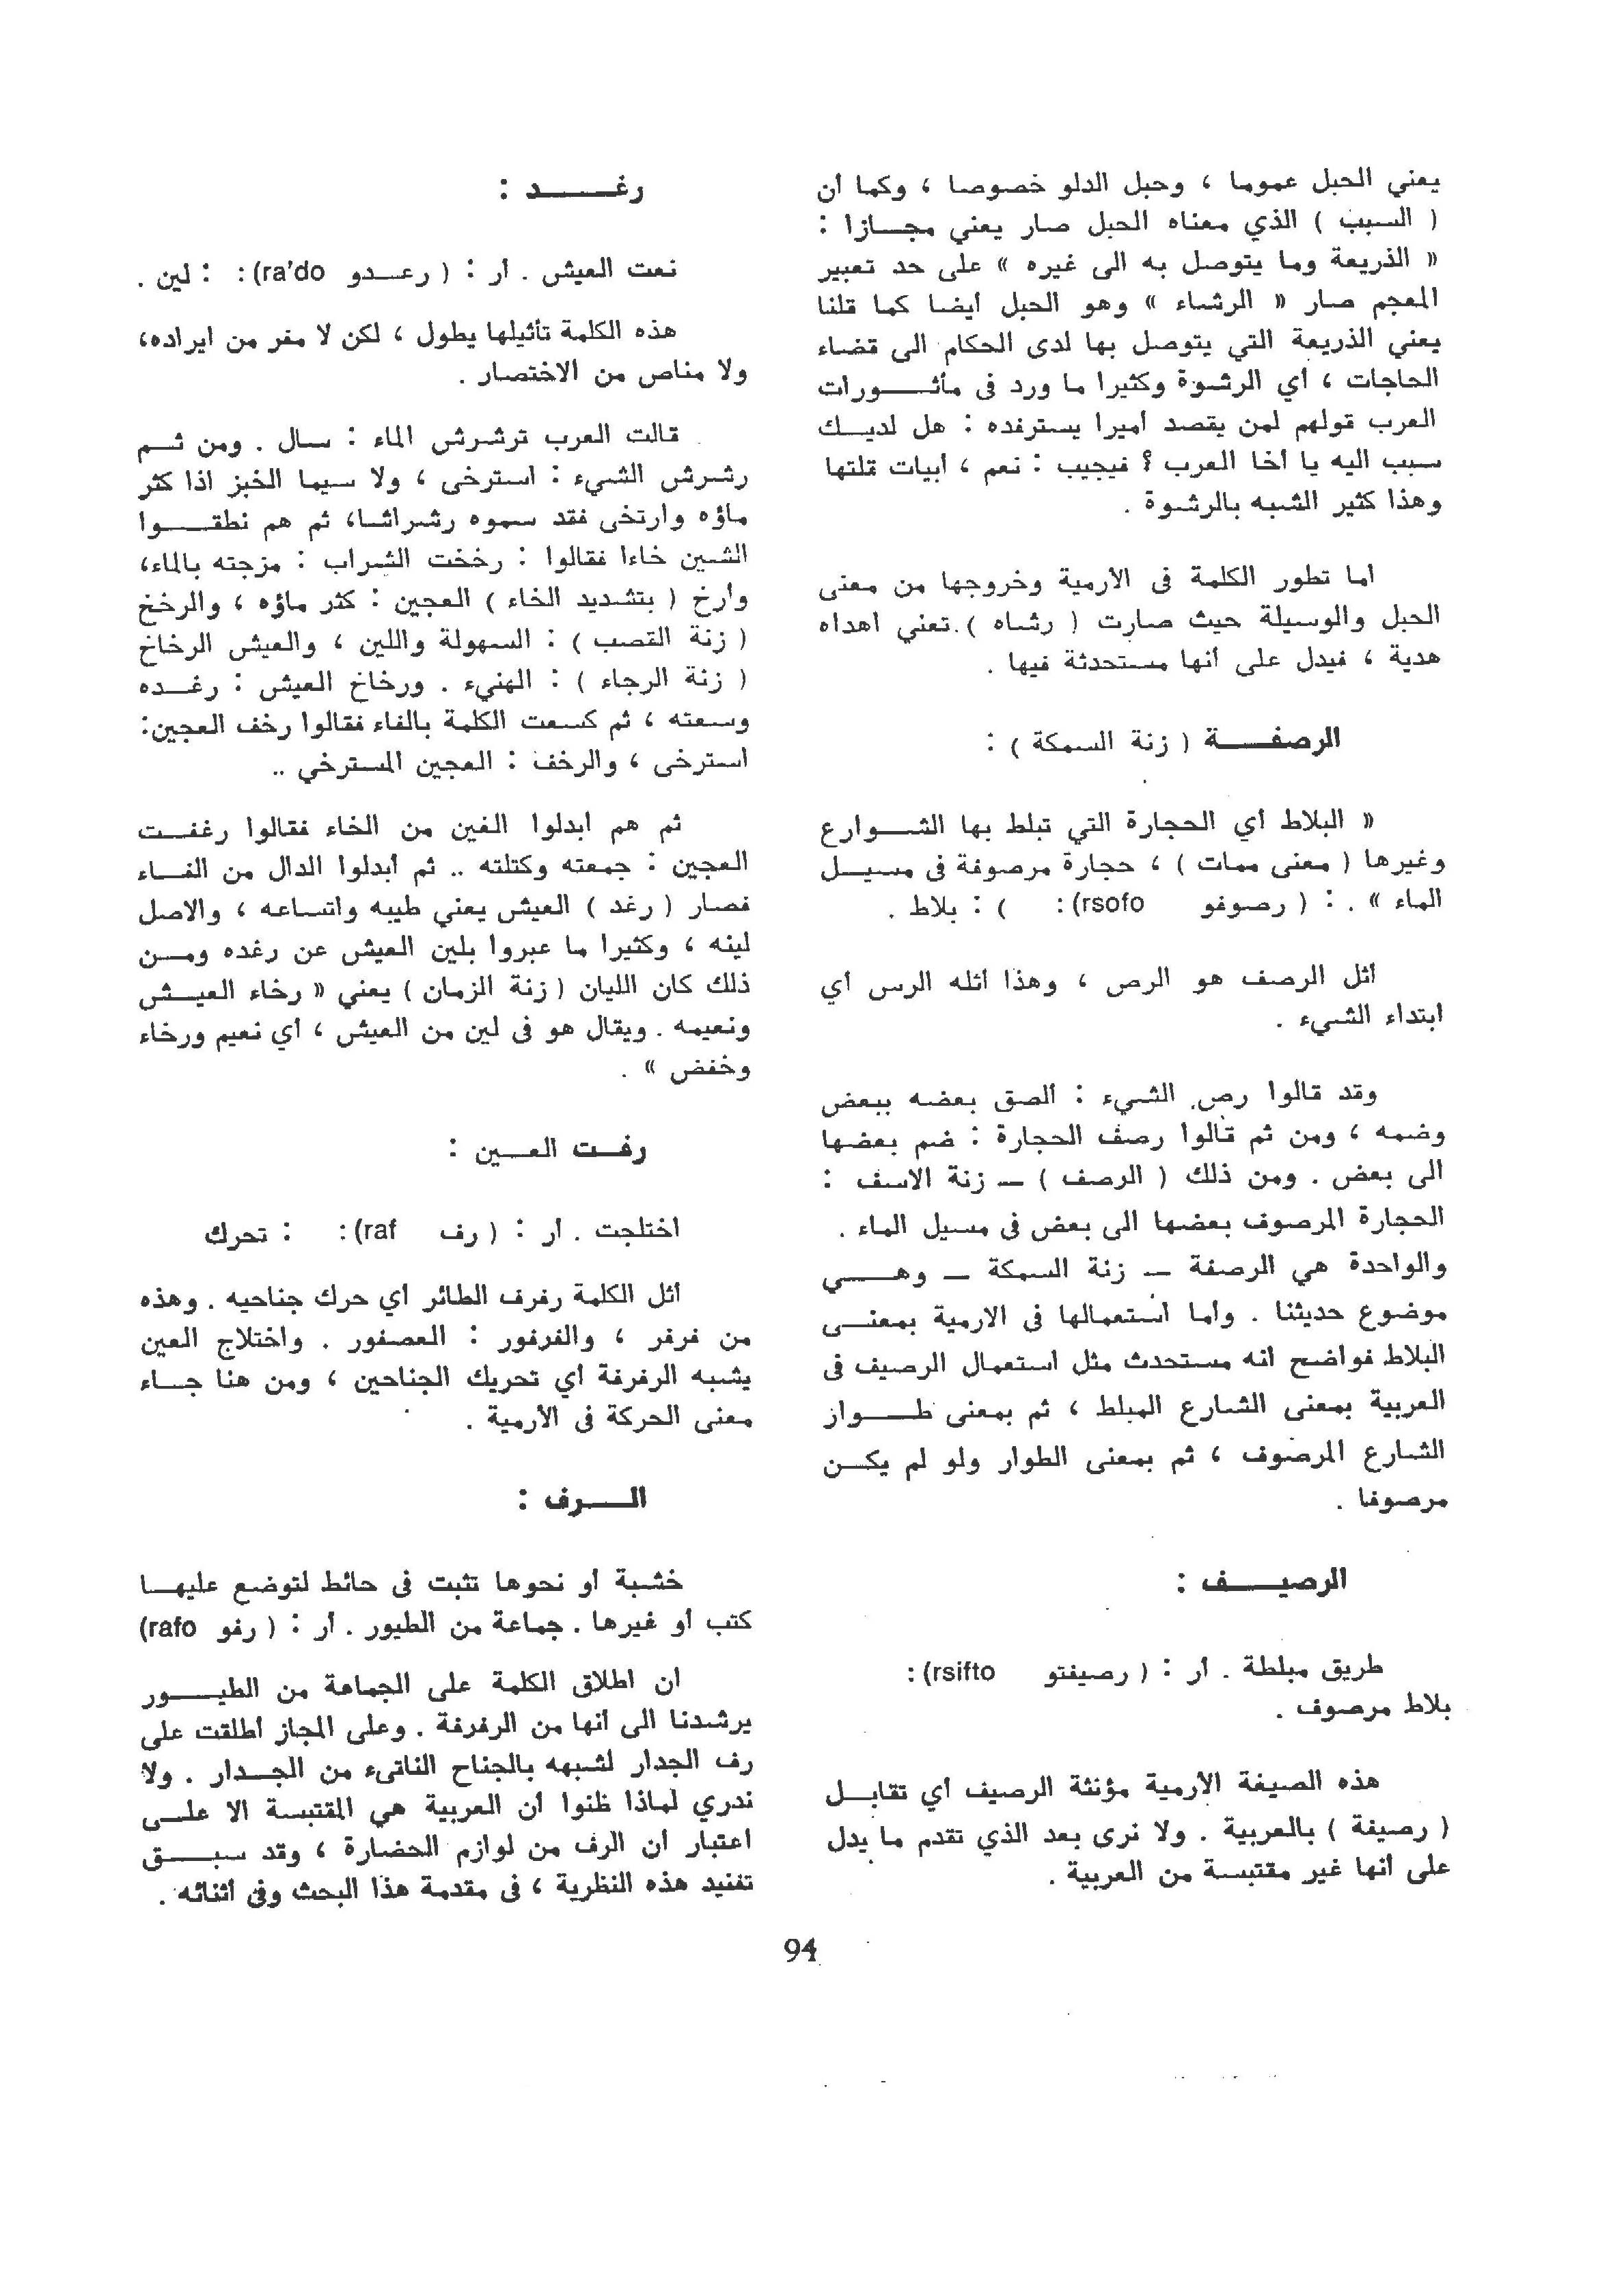 يعني الحبل عموما ، وحبل الدلو خصوصا ، وكما أن
( السبب ) الذي معناه الحبل صار يعني مجازا :
« الذريعة وما يتوصل به الى غيره » على حد تعبير
المعجم صار « الرشاء » وهو الحبل أيضا كما قلنا
يعني الذريعة التي يتوصل بها لدى الحكام الى قضاء
الحاجات ، أي الرشوة وكثيرا ما ورد فى مأثورات
العرب قولهم لمن يقصد أميرا يسترفده : هل لديك
سبب اليه يا أخا العرب ؟ فيجيب : نعم ، أبيات قلتها
وهذا كثير الشبه بالرشوة .
اما تطور الكلمة فى الارمية وخروجها من معنى
الحبل والوسيلة حيث صارت ( رشاه ) تعني اهداه
هدية ، فيدل على أنها مستحدثة فيها .
الرصفة ( زنة السمكة ) :
« البلاط أي الحجارة التي تبلط بها الشوارع
وغيرها ( معنى ممات ) ، حجارة مرصوفة فى مسيل
الماء » . : ( رصوفو rsofo): ) : بلاط .
أثل الرصف هو الرص ، وهذا أثله الرس أي
ابتداء الشيء .
وقد قالوا رص الشيء : الصق بعضه ببعض
وضمه ، ومن ثم قالوا رصف الحجارة : ضم بعضها
الى بعض . ومن ذلك ( الرصف ) — زنة الاسف :
الحجارة المرصوف بعضها الى بعض فى مسيل الماء .
والواحدة هي الرصفة — زنة السمكة — وهي
موضوع حديثنا . وأما استعمالها فى الارمية بمعنى
البلاط فواضح أنه مستحدث مثل استعمال الرصيف فى
العربية بمعنى الشارع المبلط ، ثم بمعنى طوار
الشارع المرصوف ، ثم بمعنى الطوار ولو لم يكن
مرصوفا .
الرصيف :
طريق مبلطة . أر : ( رصيفتو rsifto):
بلاط مرصوف .
هذه الصيغة الارمية مؤنثة الرصيف أي تقابل
( رصيفة ) بالعربية . ولا نرى بعد الذي تقدم ما يدل
على أنها غير مقتبسة من العربية .
رغد :
نعت العيش . أر : ( رعدو ra'do): : لين .
هذه الكلمة تأثيلها يطول ، لكن لا مفر من ايراده،
ولا مناص من الاختصار .
قالت العرب ترشرش الماء : سال . ومن ثم
رشرش الشيء : استرخى ، ولا سيما الخبز اذا كثر
ماؤه وارتخى فقد سموه رشراشا، ثم هم نطقوا
الشين خاءا فقالوا : رخخت الشراب : مزجته بالماء،
وأرخ ( بتشديد الخاء ) العجين : كثر ماؤه ، والرخخ
( زنة القصب ) : السهولة واللين ، والعيش الرخاخ
( زنة الرجاء ) : الهنيء . ورخاخ العيش : رغده
وسعته ، ثم كسعت الكلمة بالفاء فقالوا رخف العجين:
استرخى ، والرخف : العجين المسترخي ..
ثم هم ابدلوا الغين من الخاء فقالوا رغفت
العجين : جمعته وكتلته .. ثم أبدلوا الدال من الفاء
فصار ( رغد ) العيش يعني طيبه واتساعه ، والاصل
لينه ، وكثيرا ما عبروا بلين العيش عن رغده ومن
ذلك كان الليان ( زنة الزمان ) يعني « رخاء العيش
ونعيمه . ويقال هو فى لين من العيش ، أي نعيم ورخاء
وخفض » .
رفت العين :
اختلجت . أر : ( رف raf): : تحرك
أثل الكلمة رفرف الطائر أي حرك جناحيه . وهذه
من فرفر ، والفرفور : العصفور . واختلاج العين
يشبه الرفرفة أي تحريك الجناحين ، ومن هنا جاء
معنى الحركة فى الأرمية .
الرف :
خشبة أو نحوها تثبت فى حائط لتوضع عليها
كتب أو غيرها . جماعة من الطيور . أر : ( رفو rafo)
ان اطلاق الكلمة على الجماعة من الطيور
يرشدنا الى أنها من الرفرفة . وعلى المجاز أطلقت على
رف الجدار لشبهه بالجناح الناتىء من الجدار . ولا
ندري لماذا ظنوا أن العربية هي المقتبسة الا على
اعتبار أن الرف من لوازم الحضارة ، وقد سبق
تفنيد هذه النظرية ، فى مقدمة هذا البحث وفى أثنائه .
94